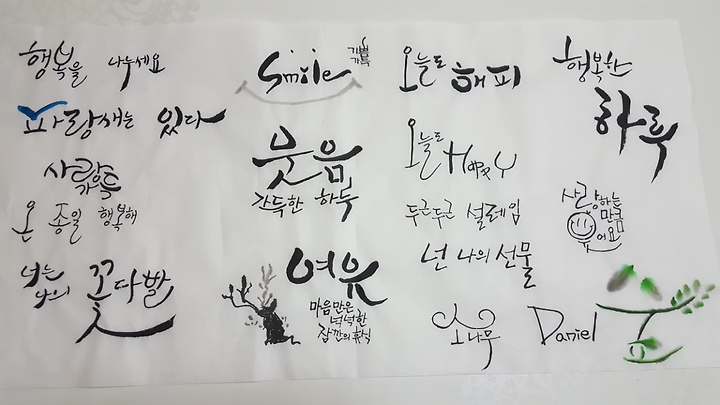 행복을 나누세요
파랑새는 있다
사랑
가득
온 종일 행복해
너는
나의 꽃다발
Smile
기쁨
가득
웃음
가득한 하루
여유
마음만은
넉넉한
잠깐의 휴식
오늘도 해피
오늘도 Happy
두근두근 설레임
넌 나의 선물
소나무
행복한
하루
사랑하는
만큼
웃어요
Daniel